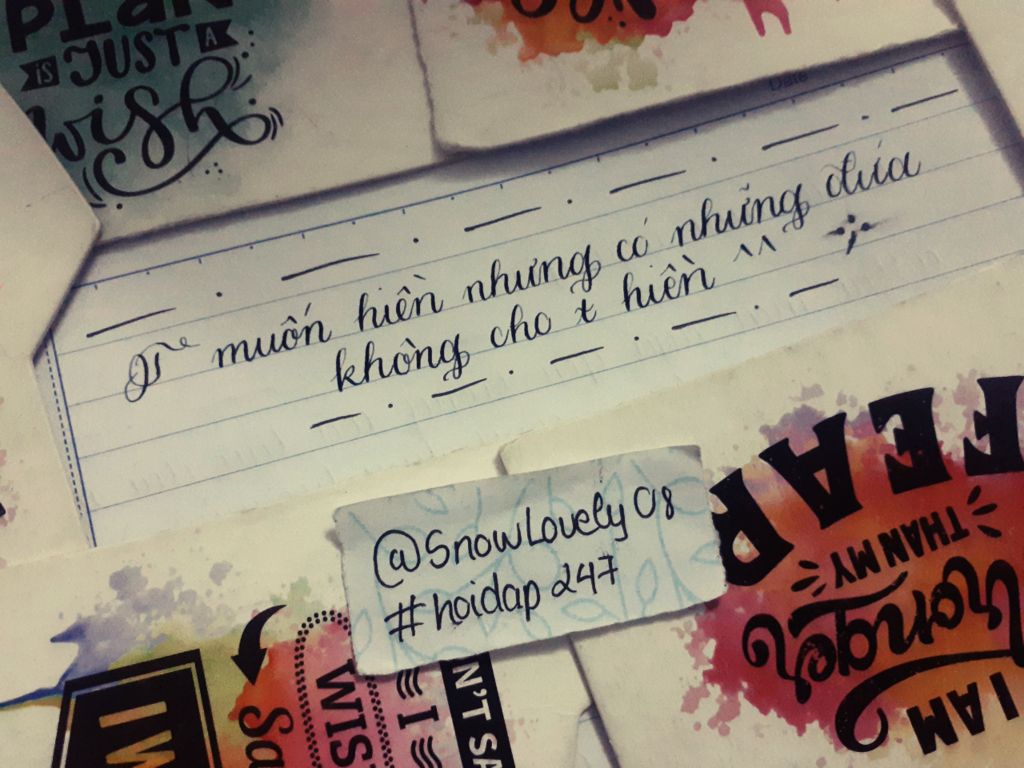 PLAN
IS JUST A
Wish
Date
T muốn hiền nhưng có những đứa
không cho t hiền ^^
@SnowLovely 08
#hoidap 247
I AM
THAN MY
FEAR
WIS
N'T SA